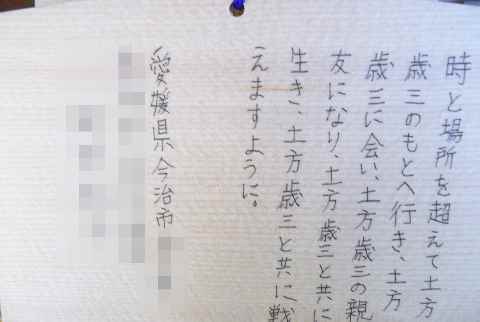 時と場所を超えて土方
歳三のもとへ行き、土方
歳三に会い、土方歳三の親
友になり、土方歳三と共に
生き、土方歳三と共に戦
えますように。
愛媛県今治市